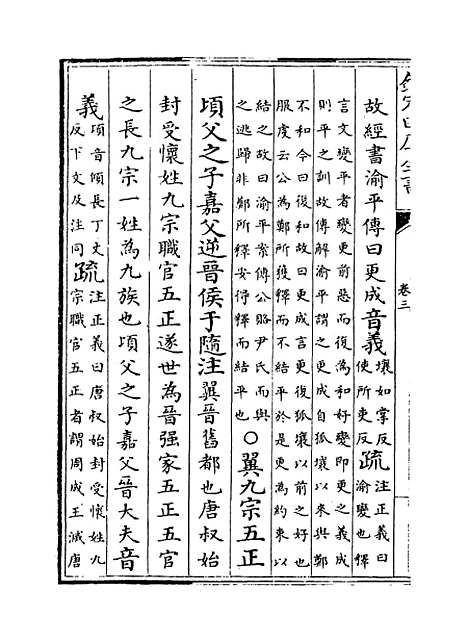 欽定四庫全書
卷三
故經書渝平傳曰更成音義壤如掌反
使所吏反
疏注正義曰
渝變也釋
言文變平者變更前惡而復為和好變即更之義成
則平之訓故傳解渝平謂之更成自狐壤以來與鄭
不和今日復和故曰更成言更復狐壤以前之好也
服虔云公為鄭所獲釋而不結平於是更為約束以
結之故曰渝平案傳公賂尹氏而與
之逃歸非鄭所釋安得釋而結平也
○翼九宗五正
頃父之子嘉父逆晉侯于隨注翼晉舊都也唐叔始
封受懷姓九宗職官五正遂世為晉强家五正五官
之長九宗一姓為九族也頃父之子嘉父晉大夫音
義頃音傾長丁丈
反下文及注同
疏注正義曰唐叔始封受懷姓九
宗職官五正者謂周成王滅唐